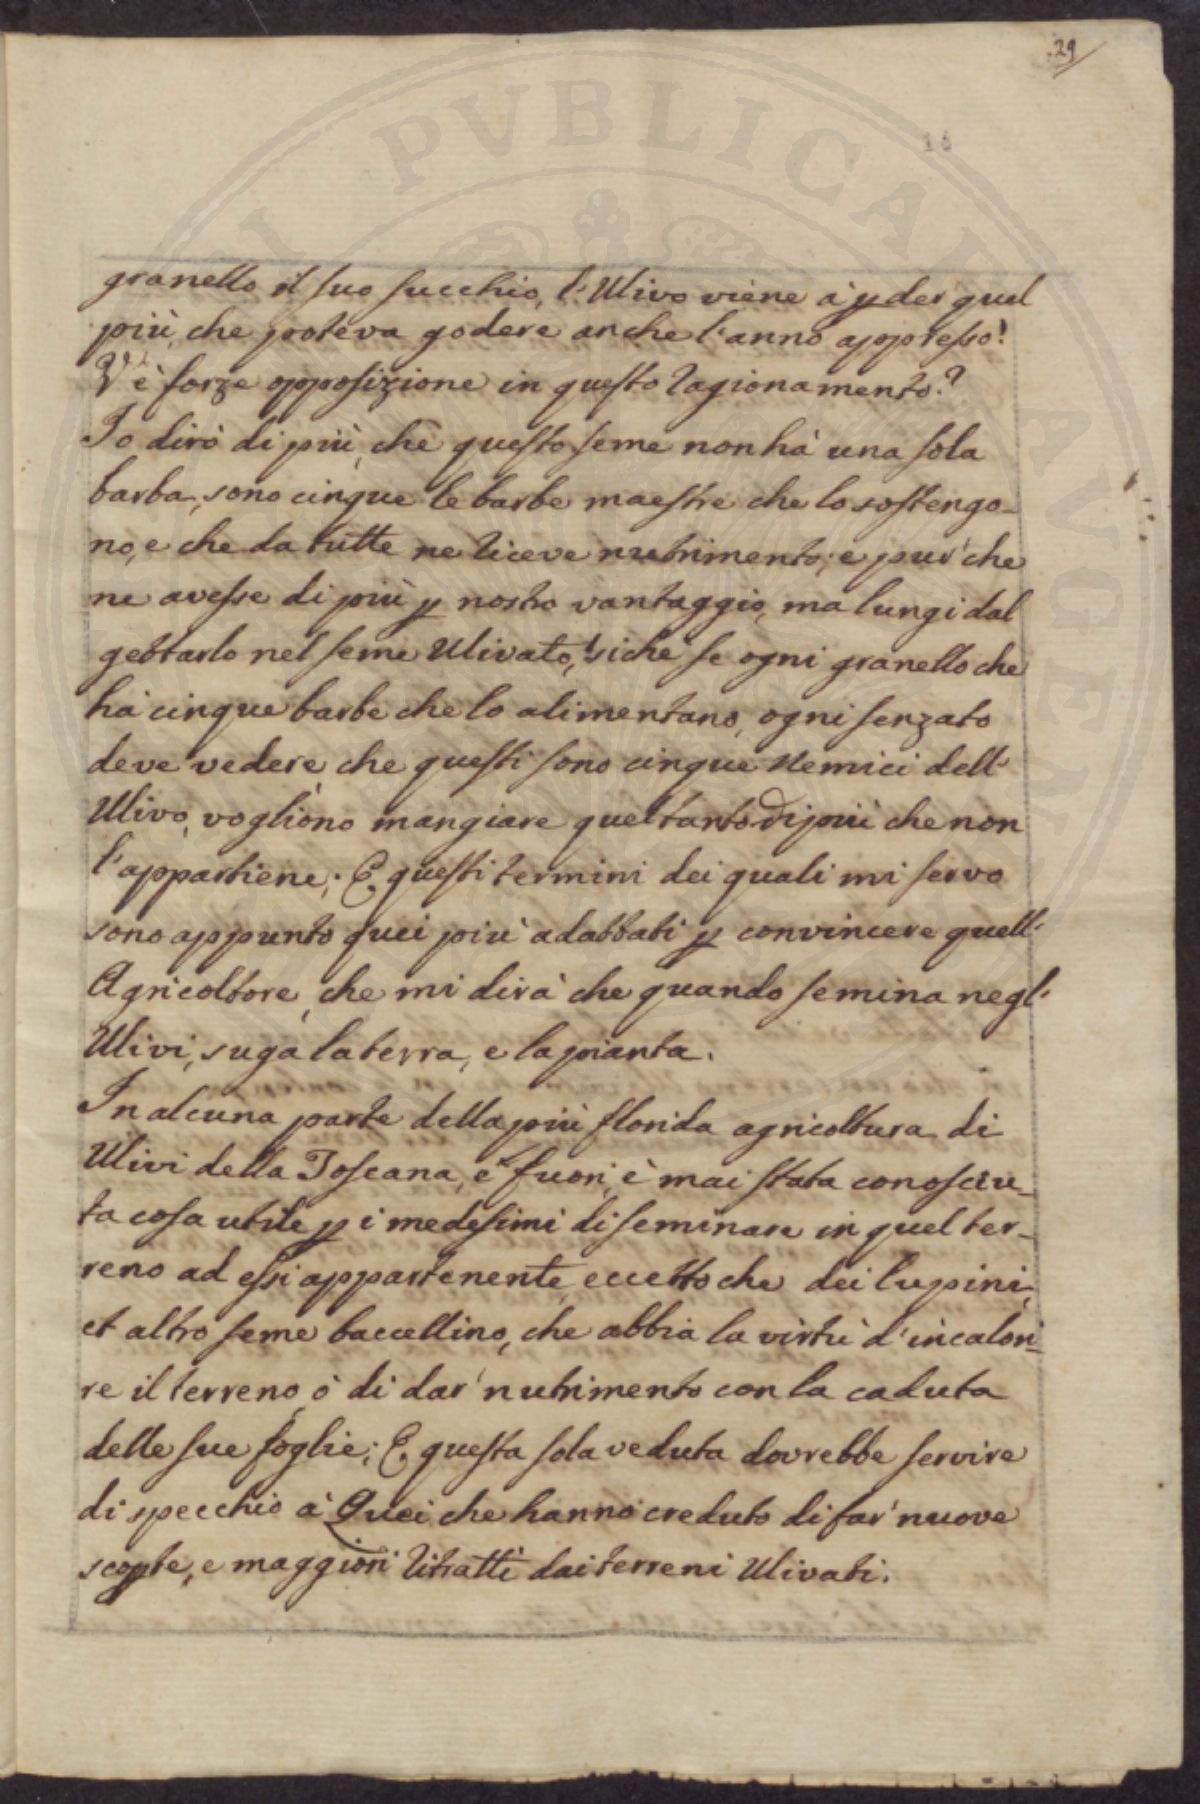 29
16
granello il suo succhio, l'Ulivo viene à p̱der quel
più, che poteva godere anche l'anno appresso!
V'è forze opposizione in questo ragionamento?
Io dirò di più, che questo seme non hà una sola
barba, sono cinque le barbe maestre che lo sostengo-
no, e che da tutte ne riceve nutrimento; e pur' che
ne avesse di più p̱ nostro vantaggio, ma lungi dal
gettarlo nel seme Ulivato, siche se ogni granello che
hà cinque barbe che lo alimentano, ogni senzato
deve vedere che questi sono cinque Nemici dell'
Ulivo, vogliono mangiare quel tanto di più che non
l'appartiene; E questi termini dei quali mi servo
sono appunto quei più adattati p̱ convincere quell'
Agricoltore, che mi dirà che quando semina negl'
Ulivi, suga la terra, e la pianta.
In alcuna parte della più florida agricoltura di
Ulivi della Toscana, e fuori, è mai stata conosciu-
ta cosa utile p̱ i medesimi di seminare in quel ter-
reno ad essi appartenente, eccetto che dei lupini,
et altro seme baccellino, che abbia la virtù d'incalori-
re il terreno, ò di dar' nutrimento con la caduta
delle sue foglie; E questa sola veduta dovrebbe servire
di specchio à Quei che hanno creduto di far' nuove
scop̱te, e maggiori ritratti dai terreni Ulivati.
PVBLICAE